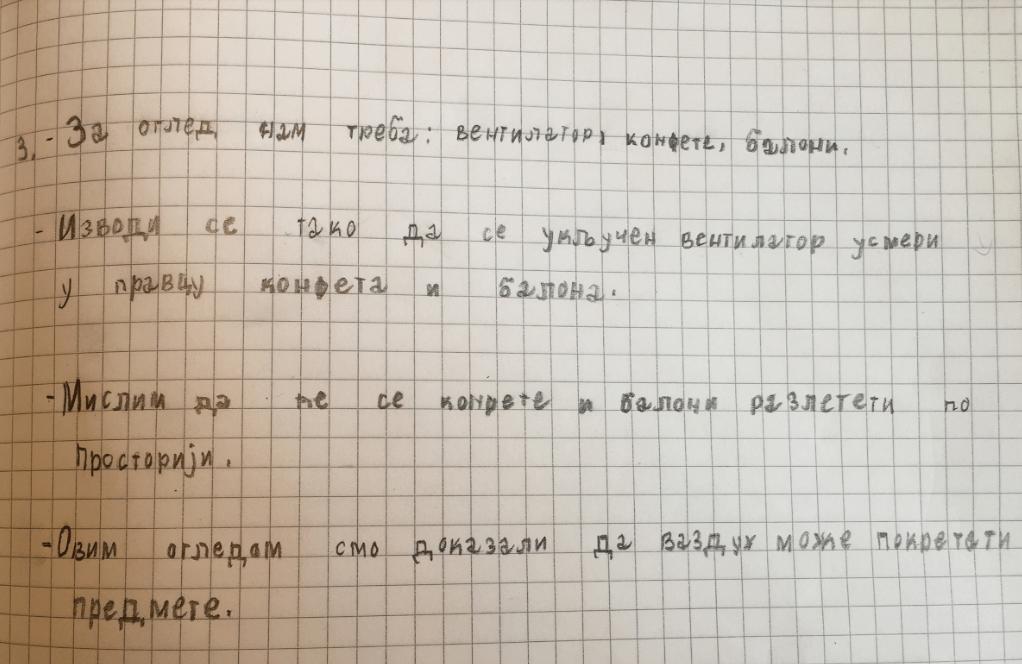 3. - За оглед нам треба: вентилатор, конфете, балони.
- Изводи се тако да се укључен вентилатор усмери
у правцу конфета и балона.
- Мислим да ће се конфете и балони разлетети по
просторији.
- Овим огледом смо доказали да ваздух може покретати
предмете.